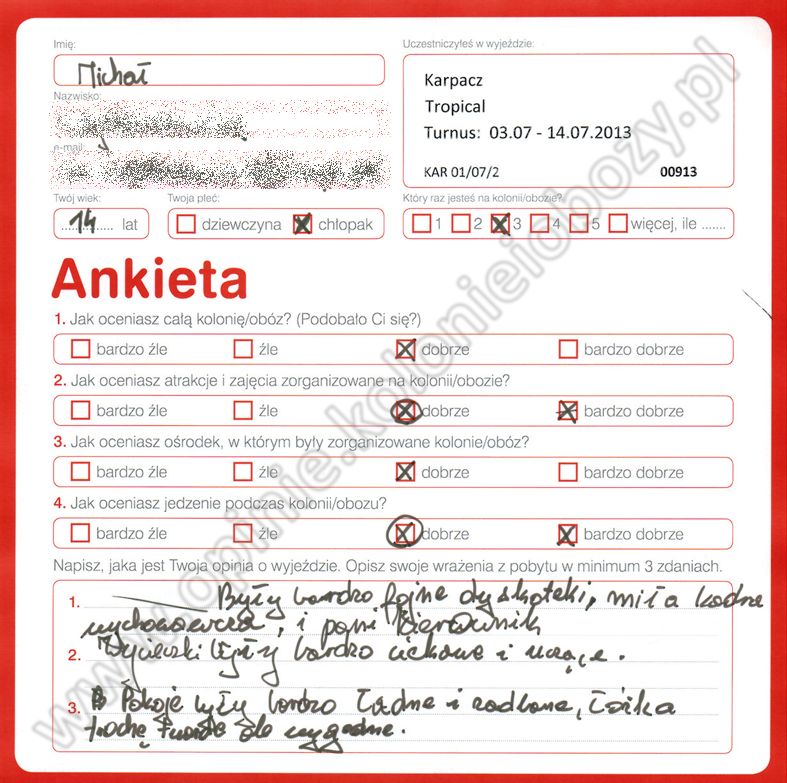 Imię:
Michał
Uczestniczyłeś w wyjeździe:
Karpacz
Tropical
Turnus: 03.07 - 14.07.2013
KAR 01/07/2 00913
Nazwisko:
e-mail:
Twój wiek:
14 lat
Twoja płeć:
dziewczyna chłopak
Który raz jesteś na kolonii/obozie?
1 2 3 4 5 więcej, ile .......
Ankieta
1. Jak oceniasz całą kolonię/obóz? (Podobało Ci się?)
bardzo źle źle dobrze bardzo dobrze
2. Jak oceniasz atrakcje i zajęcia zorganizowane na kolonii/obozie?
bardzo źle źle dobrze bardzo dobrze
3. Jak oceniasz ośrodek, w którym były zorganizowane kolonie/obóz?
bardzo źle źle dobrze bardzo dobrze
4. Jak oceniasz jedzenie podczas kolonii/obozu?
bardzo źle źle dobrze bardzo dobrze
Napisz, jaka jest Twoja opinia o wyjeździe. Opisz swoje wrażenia z pobytu w minimum 3 zdaniach.
1. Były bardzo fajne dyskoteki, miła kadra
wychowawcza, i pani kierownik
2. Wycieczki były bardzo ciekawe i
3. Pokoje były bardzo ładne i zadbane, łóżka
trochę twarde ale wygodne.
www.opinie.kolonieiobozy.pl